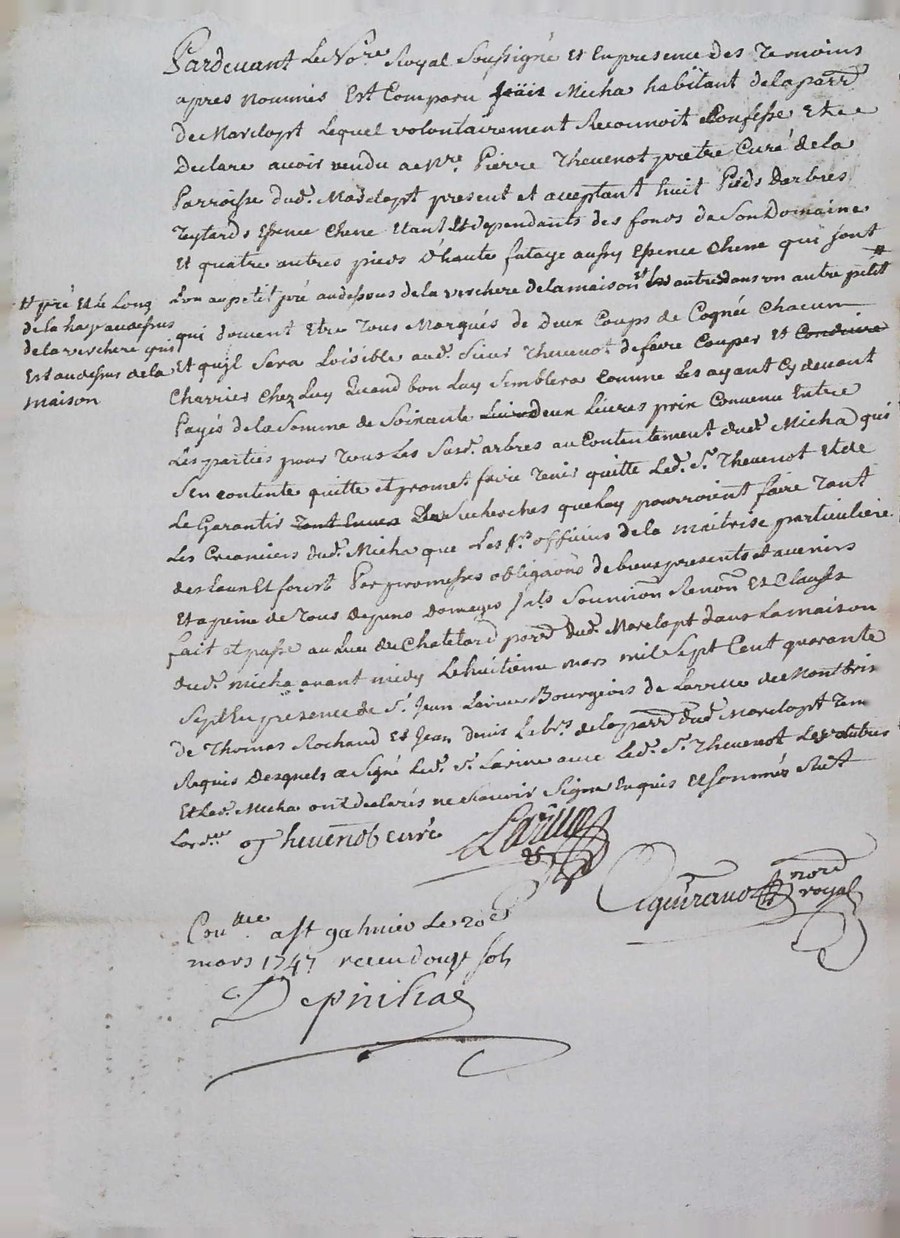 Pardevant Le No.re Royal Soussigné et En presence des Temoins
apres nommés Est Comparu Micha habitant de la parr.
de Marclopt Lequel volontairement Reconnoit Confesse Et
Declare avoir vendu a M.re Pierre Thevenot pretre Curé de la
Parroisse dud. Marclopt present et acceptant huit Pieds darbres
Teytards Espence Chene Etant Et dependants des fonds de Son Domaine
Et quatre autres pieds d'haute futaye aussy Espence Chene qui sont
L'un au petit pré audessous de la verchere de la maison Et les autre dans un autre petit #
# pré Et le Long
de la haye audessus
de la verchere qui
Est audessus de la
maison
qui doivent Etre Tous Marqués de deux Coups de Cognée Chacun
Et quil Sera Loisible aud. Sieur Thevenot de faire Couper et Conduire
Charrier Chez Luy Quand bon Luy Semblera Comme Les ayant Cy devant
Payés de la Somme de Soixante deux Livres prix Convenu Entre
Les parties pour Tous Les Susd. arbres au Contentement dud. Micha qui
S'en contente quitte et promet faire Tenir quitte Led. S.r Thevenot Et de
Le Garantir Tant Envers Des Recherches que Luy pourroient faire Tant
Les Creanciers dud. Micha que Les S.rs officiers de la maitrise particuliere
des Eaux Et forest Par promesses obligaõns de biens presents et avenirs
Et a peine de Tous depens domages Soumiõn Renõn Et Clauses
fait et passé au Lieu du Chatelard parr. dud. Marclopt dans La maison
dud. micha avant midy Le huitieme mars mil Sept Cent quarante
Sept En presence de S.r Jean Bourgeois de La ville de Montbrison
de Thomas Rochaud Et Jean denis Lab.rs de la parr. dud. Marclopt Tem
Requis Desquels a Signé Led. S.r avec Led. S.r Thevenot Les autres
Et Led. Micha ont declarés ne Scavoir Signer Enquis Et Sommés
Thevenot curé
no.re
royal
Cou.lle a St galmier Le 20e
mars 1747 receu douze sols